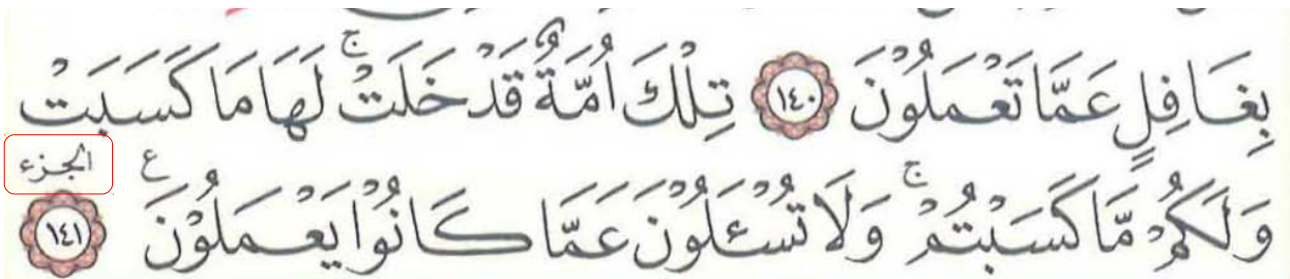 بِغَافِلٍ عَمَّا تَعْمَلُوْنَ ١٤٠ تِلْكَ اُمَّةٌ قَدْ خَلَتْ ۚ لَهَا مَا كَسَبَتْ
وَلَكُمْ مَّا كَسَبْتُمْ ۚ وَلَا تُسْـَٔلُوْنَ عَمَّا كَانُوْا يَعْمَلُوْنَ ع ١٤١
الجزء